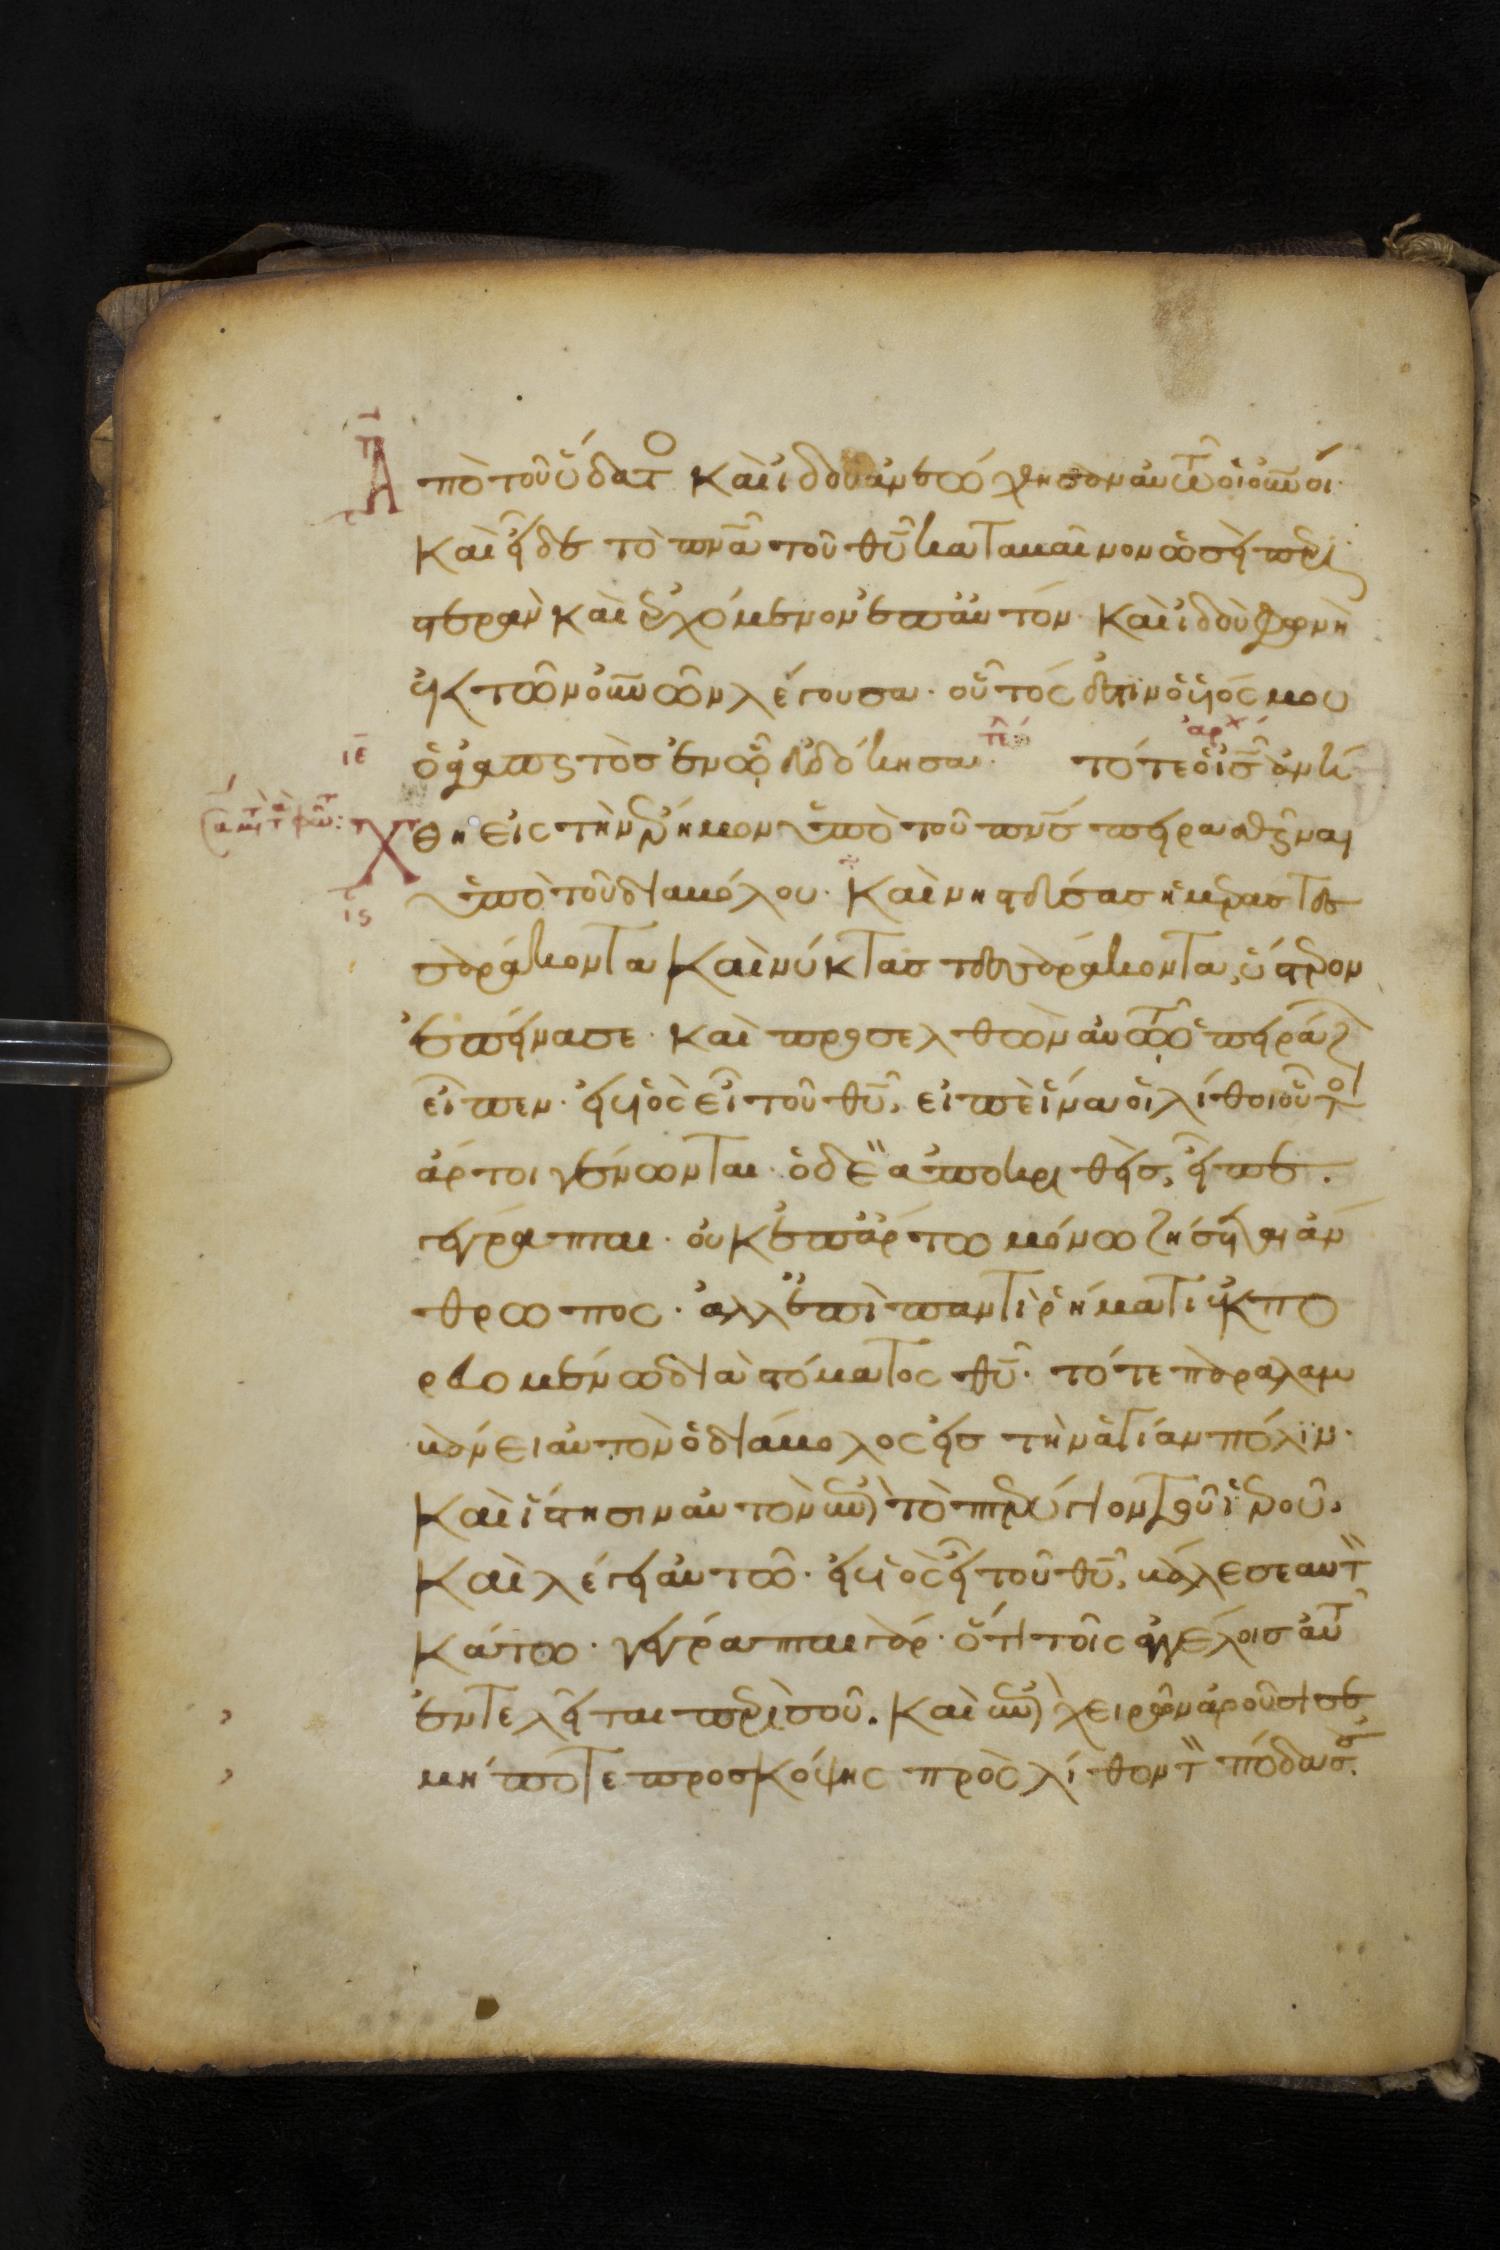 Ἀπὸ τοῦ ὕδατο καὶ ἰδοὺ ἀνεώχθησαν αὐτῶ οἱ οὐνοί·
καὶ εἶδε τὸ πνᾶ τοῦ θῦ καταβαῖνον ὡσεὶ περι
στερὰν καὶ ἐρχόμενον ἐπ αὐτόν· καὶ ἰδοὺ φωνὴ
ἐκ τῶν οὐνῶν λέγουσα· οὗτός ἐστιν ὁ υἱός μου
ιε ὁ ἀγαπητὸσ ἐν ᾧ εὐδόκησα· τε τότε ὁ ισ ἀνή αρχ
Χθη εἰς τὴν ἔρημον ὑπὸ τοῦ πνσ πειρασθῆναι
ις ὑπὸ τοῦ διαβόλου· Καὶ νηστεύσασ ἡμέρασ τεσ
σαράκοντα καὶ νύκτασ τεσσαράκοντα, ὕστερον
ἐπείνασε· καὶ προσελθὼν αὐτῶ ὁ πειράζ
εἶπεν· εἰ υἱὸς εἶ τοῦ θῦ, εἰπὲ ἵνα οἱ λίθοι οὗτοι
ἄρτοι γένωνται· ὁ δὲ ἀποκριθεὶσ, εἶπε·
γέγραπται· οὐκ ἐπ ἄρτω μόνω ζήσεται ἄν
θρωπος· ἀλλ ἐπὶ παντὶ ῥήματι ἐκπο
ρευομένω διὰ στόματος θῦ· τότε παραλαμ
βάνει αὐτὸν ὁ διάβολος εἰσ τὴν ἁγίαν πόλιν·
καὶ ἵστησιν αὐτὸν ἐπὶ τὸ πτερύγιον τοῦ ἱεροῦ,
καὶ λέγει αὐτῶ· εἰ υἱὸς εἶ τοῦ θῦ, βάλε σεαυτ
κάτω· γέγραπται γάρ· ὅτι τοῖς ἀγγέλοισ αὐτ
ἐντελεῖται περὶ σοῦ. καὶ ἐπὶ χειρῶν ἀροῦσί σε
μήποτε προσκόψης πρὸς λίθον τ πόδα σ.